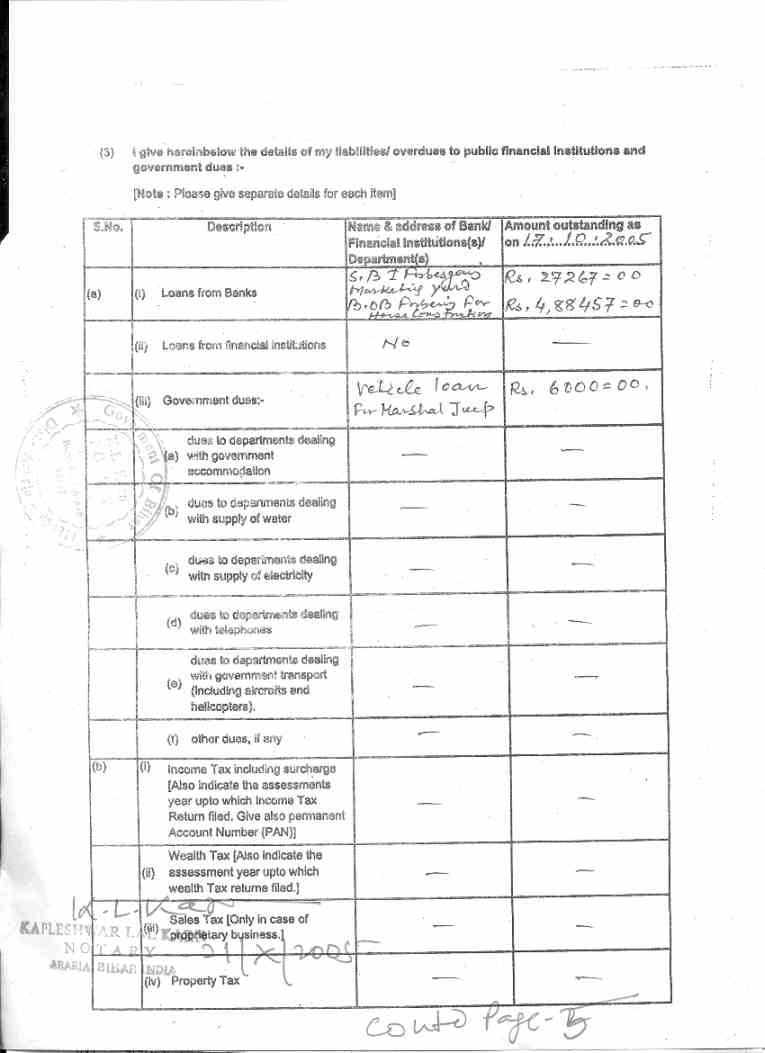 (3) I give hereinbelow the details of my liabilities/ overdues to public financial institutions and
government dues :-
[Note : Please give separate details for each item]
S.No. Description Name & address of Bank/ Amount outstanding as
Financial Institutions(s)/ on 17.10.2005
Department(s)
S.B I Forbesganj Rs. 27267=00
(a) (i) Loans from Banks Marketing yard
B.OB Forbesg For Rs. 4,88457=00
House Construction
(ii) Loans from financial institutions No —
(iii) Government dues:- Vehicle loan Rs. 6000=00.
For Marshal Jeep
dues to departments dealing
(a) with government — —
accommodation
(b) dues to departments dealing — —
with supply of water
(c) dues to departments dealing — —
with supply of electricity
(d) dues to departments dealing — —
with telephones
dues to departments dealing
with government transport
(e) (including aircrafts and — —
helicopters).
(f) other dues, if any — —
(b) (i) Income Tax including surcharge
[Also indicate the assessments
year upto which Income Tax — —
Return filed. Give also permanent
Account Number (PAN)]
Wealth Tax [Also indicate the
(ii) assessment year upto which — —
wealth Tax returns filed.]
(iii) Sales Tax [Only in case of — —
proprietary business.]
KAPLESHWAR LAL
NOTARY 21/X/2005
ARARIA BIHAR INDIA
(iv) Property Tax — —
Contd Page-5